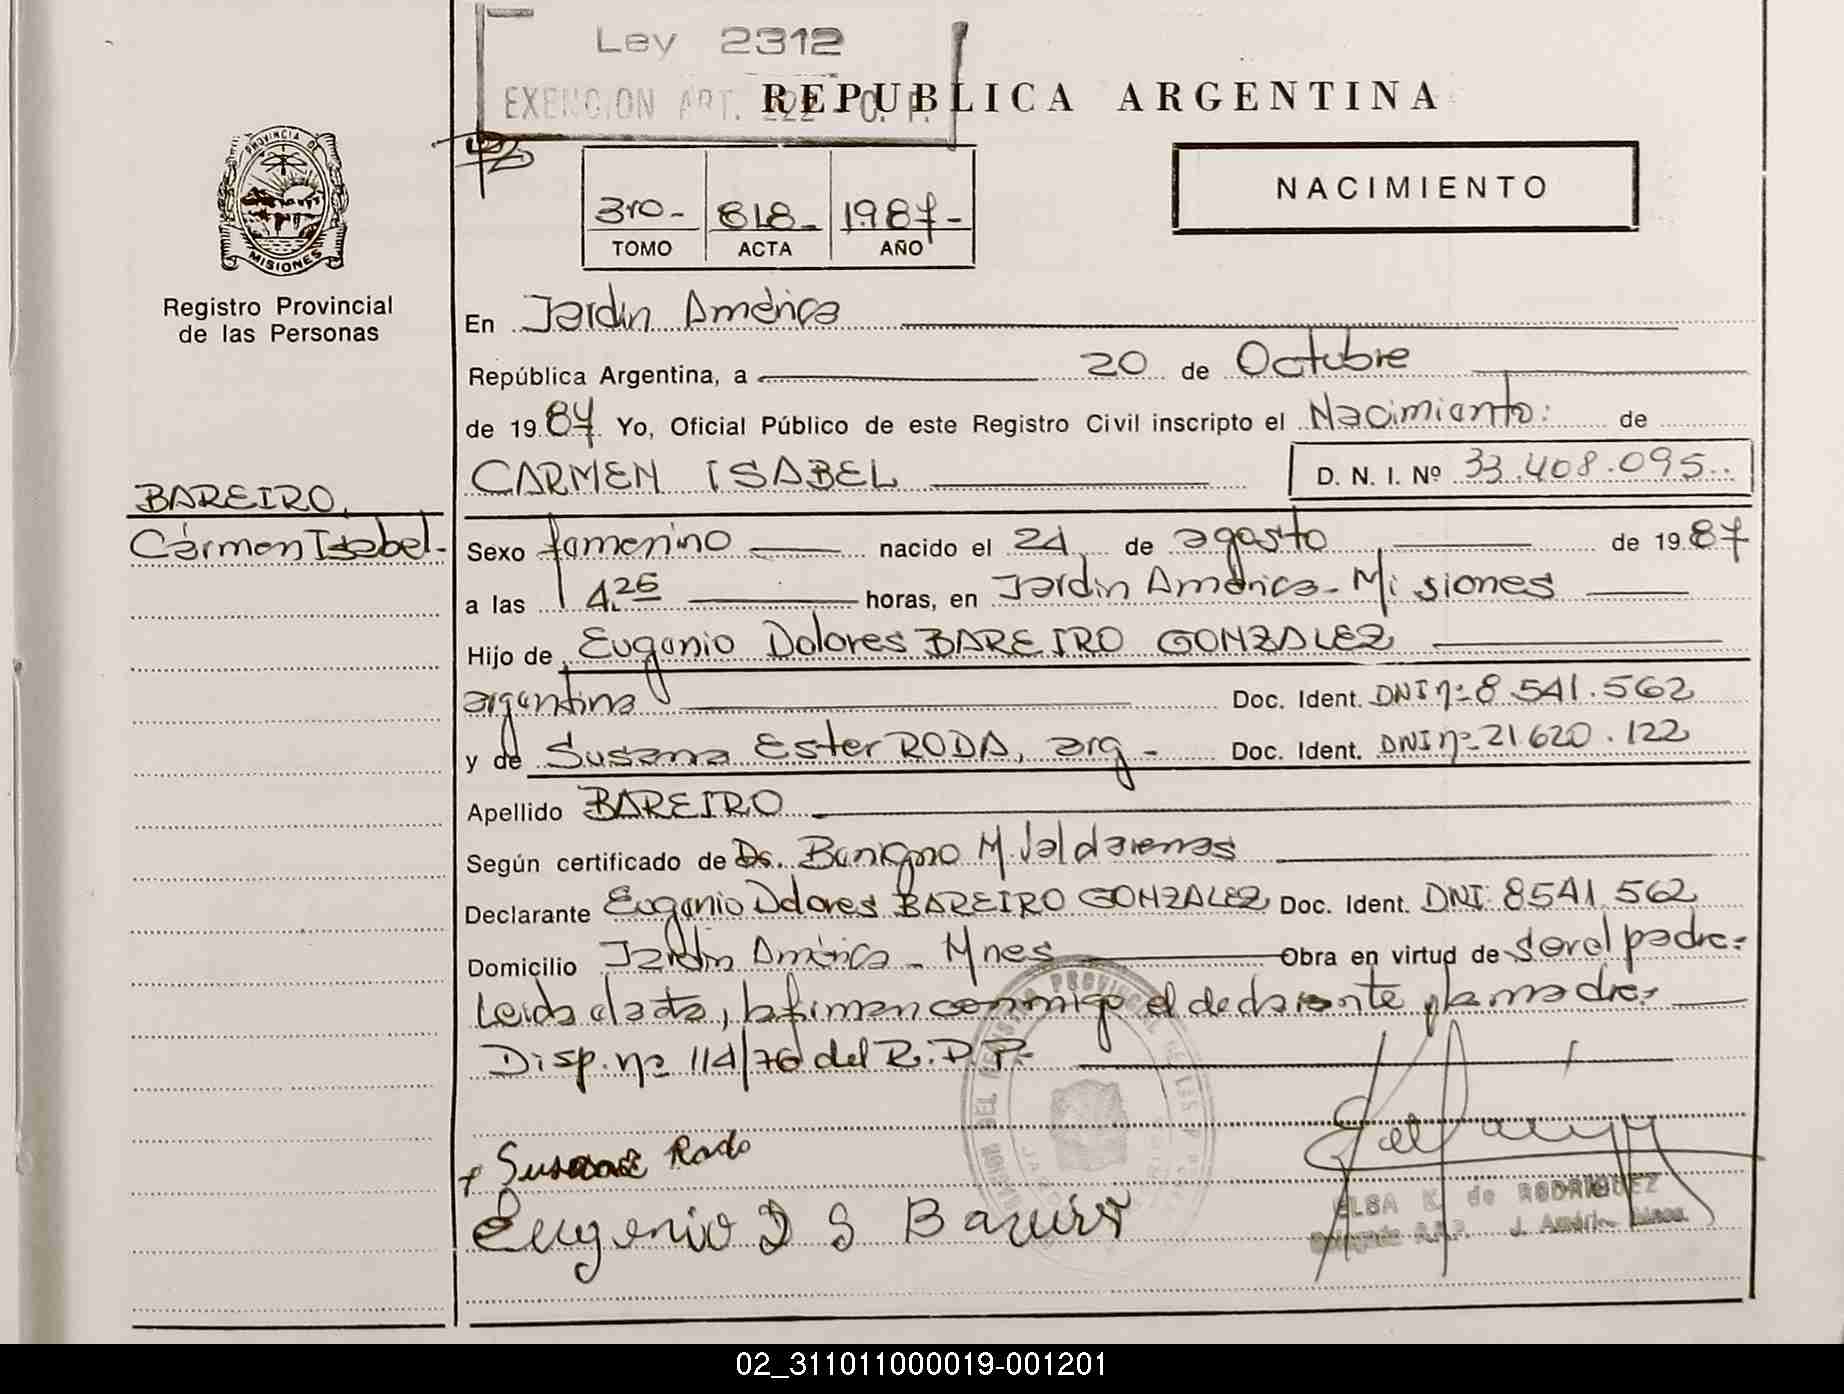 Ley 2312
EXENCION ART. 222 C. F.
REPUBLICA ARGENTINA
PROVINCIA DE
MISIONES
Registro Provincial
de las Personas
3ro- 818- 1987-
TOMO ACTA AÑO
NACIMIENTO
En Jardín América
República Argentina, a 20 de Octubre
de 1987 Yo, Oficial Público de este Registro Civil inscripto el Nacimiento: de
CARMEN ISABEL D. N. I. Nº 33.408.095
BAREIRO,
Cármen Isabel.-
Sexo femenino nacido el 24 de agosto de 1987
a las 4.25 horas, en Jardín América - Misiones
Hijo de Eugenio Dolores BAREIRO GONZALEZ
argentina Doc. Ident. DNI nº 8.541.562
y de Susana Ester RODA, arg - Doc. Ident. DNI nº 21.620.122
Apellido BAREIRO
Según certificado de Ds. Benigno M. Valdarenas
Declarante Eugenio Dolores BAREIRO GONZALEZ Doc. Ident. DNI: 8541.562
Domicilio Jardín América - Mnes Obra en virtud de ser el padre.-
Leida el acta, la firman conmigo el declarante y la madre.-
Disp. nº 114/76 del R.P.P.-
+ Susana Roda
Eugenio D G Bareiro
ELSA K. de RODRIGUEZ
Delegada R.P.P. J. América Mnes.
02_311011000019-001201